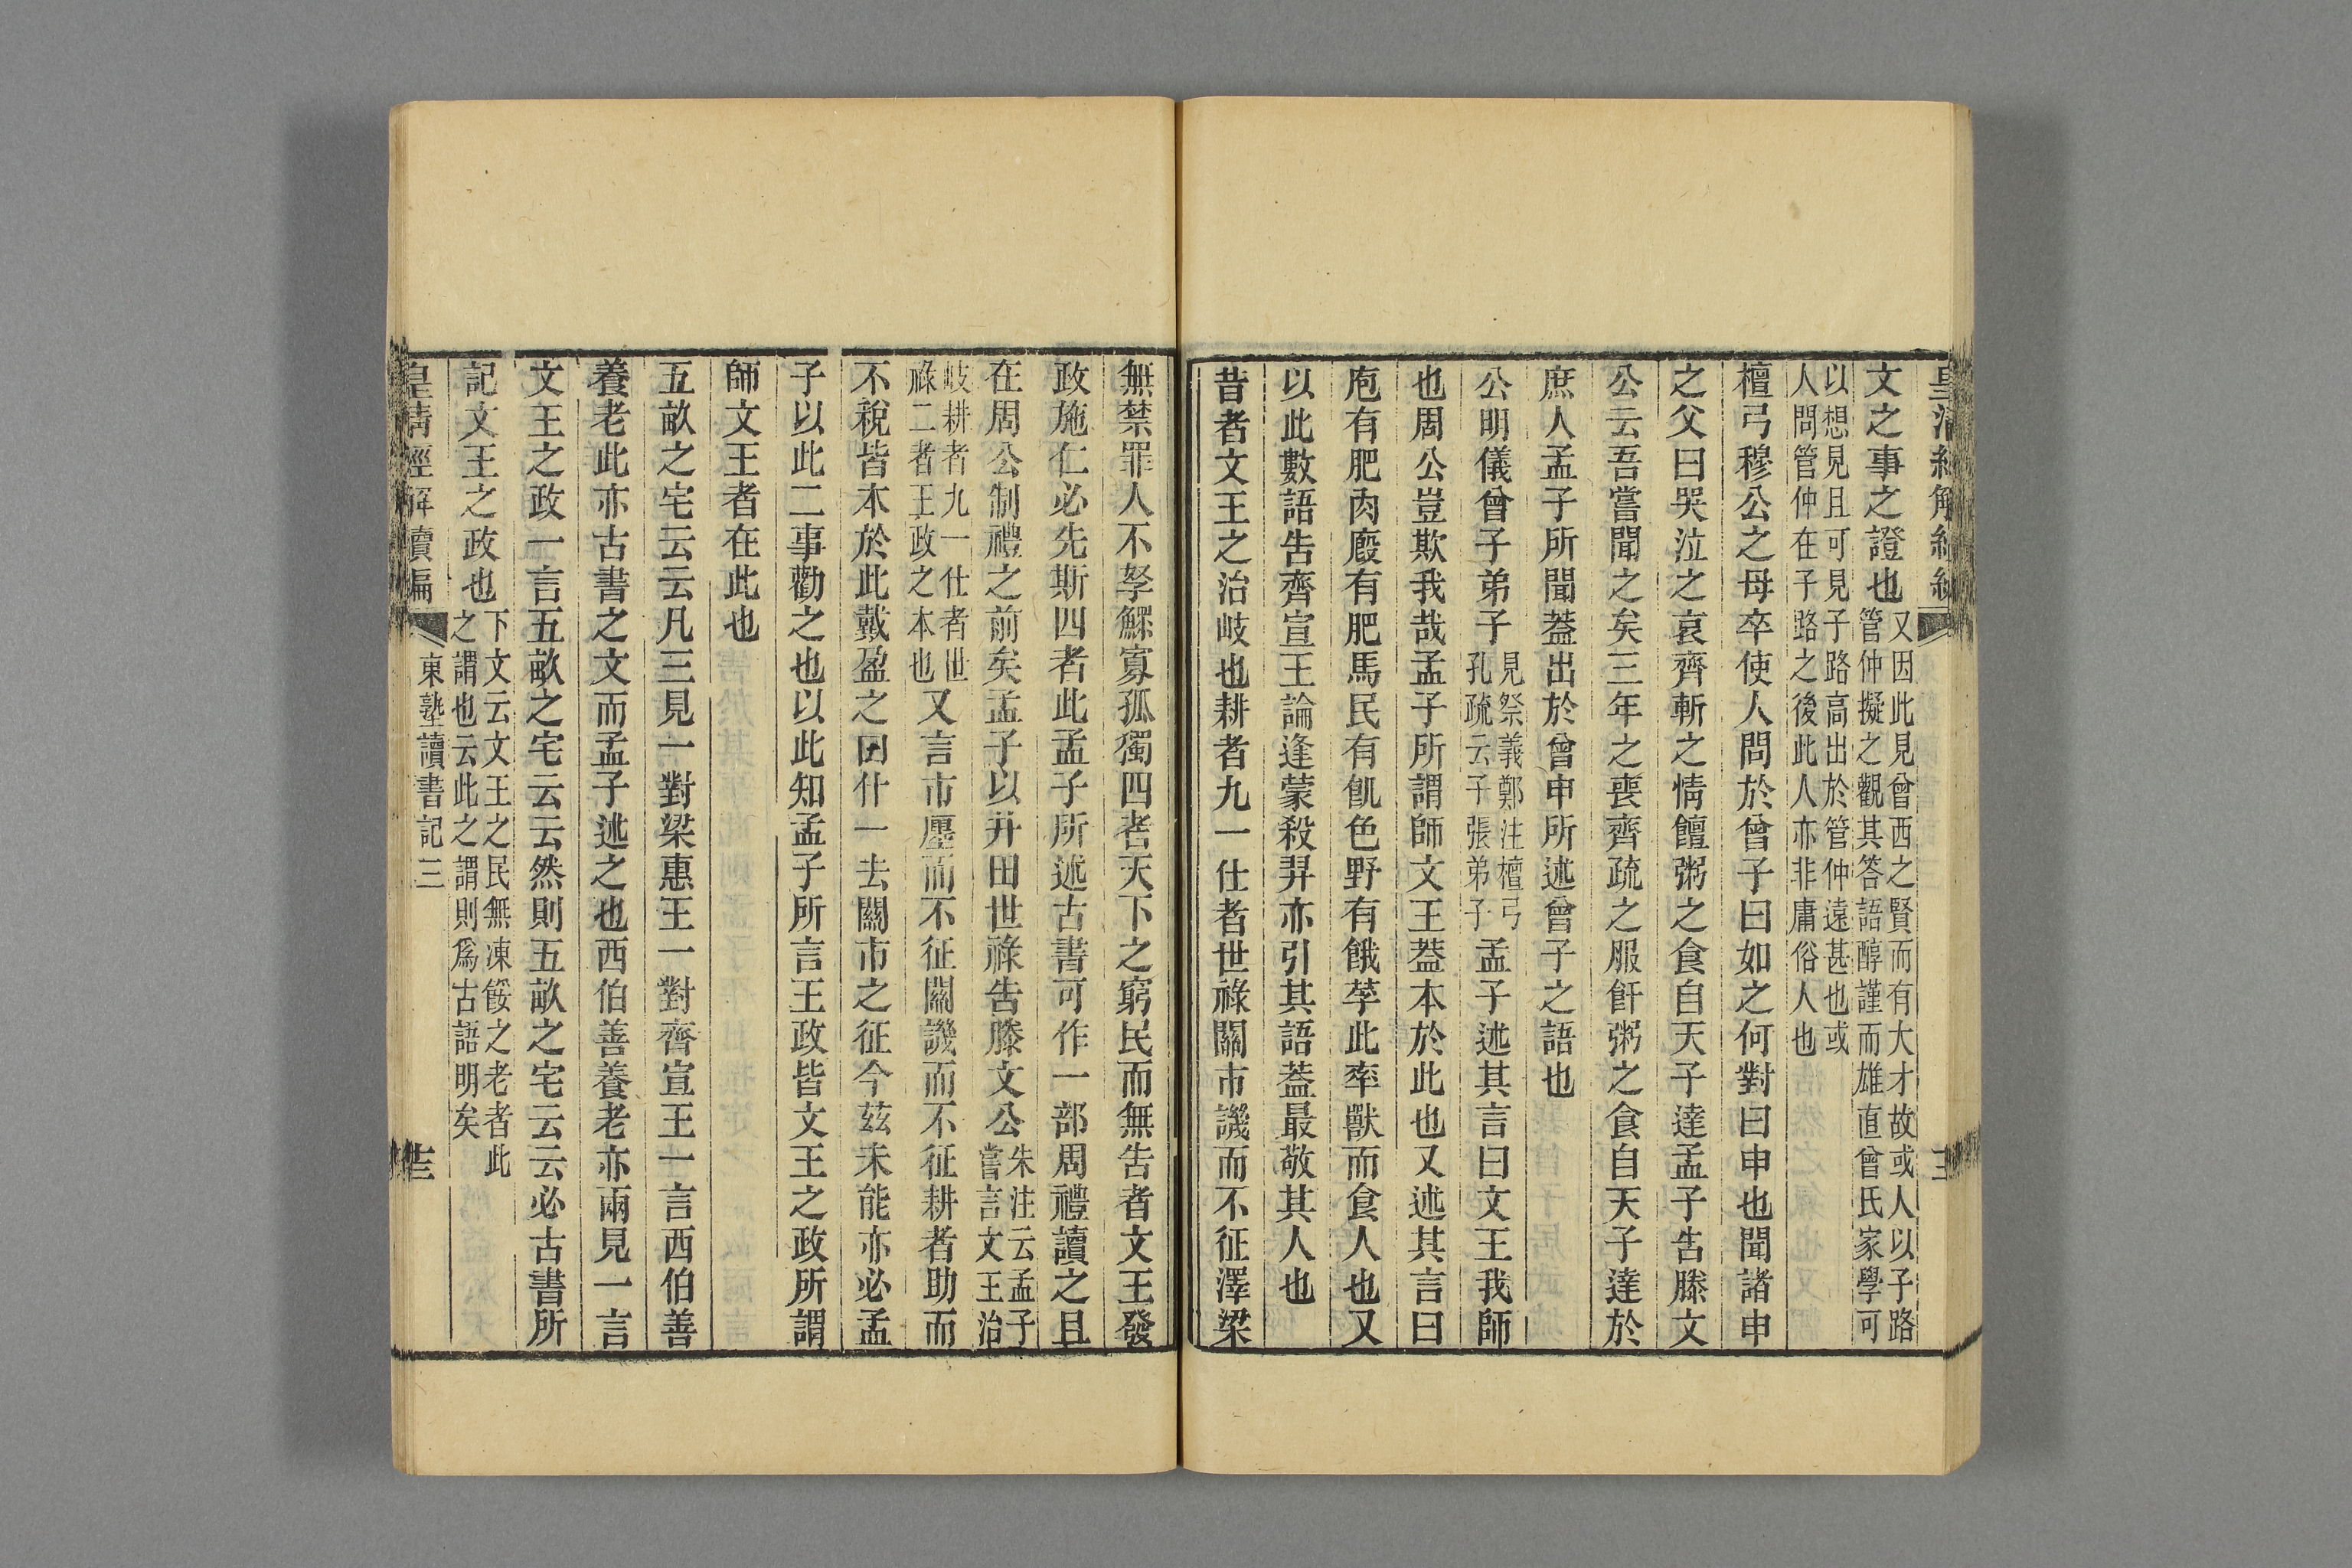 文之事之證也又因此見曾西之賢而有大才故或人以子路管仲擬之觀其答語醇謹而雄直曾氏家學可
以想見且可見子路高出於管仲遠甚也或人問管仲在子路之後此人亦非庸俗人也
檀弓穆公之母卒使人問於曾子曰如之何對曰申也聞諸申
之父曰哭泣之哀齊斬之情饘粥之食自天子達孟子告滕文
公云吾嘗聞之矣三年之喪齊疏之服飦粥之食自天子達於
庶人孟子所聞葢出於曾申所述曾子之語也
公明儀曾子弟子見祭義鄭注檀弓孔疏云子張弟子孟子述其言曰文王我師
也周公豈欺我哉孟子所謂師文王葢本於此也又述其言曰
庖有肥肉廄有肥馬民有飢色野有餓莩此率獸而食人也又
以此數語告齊宣王論逢蒙殺羿亦引其語葢最敬其人也
昔者文王之治岐也耕者九一仕者世祿關市譏而不征澤梁
無禁罪人不孥鰥寡孤獨四者天下之窮民而無告者文王發
政施仁必先斯四者此孟子所述古書可作一部周禮讀之且
在周公制禮之前矣孟子以井田世祿告滕文公朱注云孟子嘗言文王治
岐耕者九一仕者世祿二者王政之本也又言市廛而不征關譏而不征耕者助而
不稅皆本於此戴盈之曰什一去關市之征今茲未能亦必孟
子以此二事勸之也以此知孟子所言王政皆文王之政所謂
師文王者在此也
五畝之宅云云凡三見一對梁惠王一對齊宣王一言西伯善
養老此亦古書之文而孟子述之也西伯善養老亦兩見一言
文王之政一言五畝之宅云云然則五畝之宅云云必古書所
記文王之政也下文云文王之民無凍餒之老者此之謂也云此之謂則爲古語明矣
皇清經解續編
東塾讀書記三